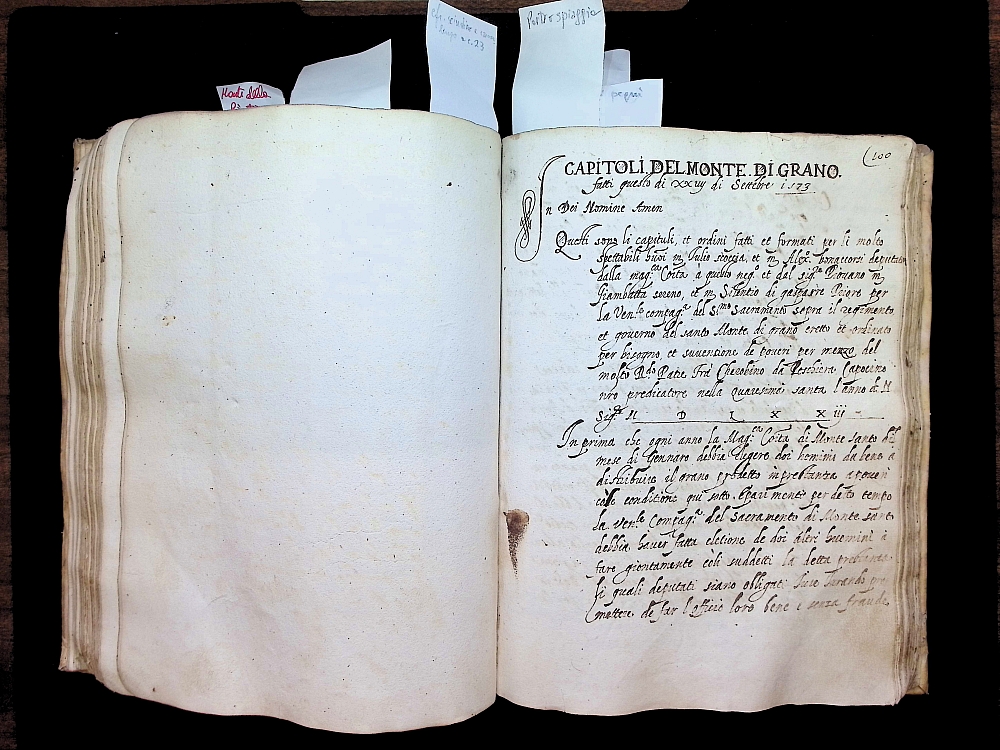 Porti e spiaggie
pegni
Monti della
100
CAPITOLI DEL MONTE DI GRANO.
fatti questo di XXIIIJ di Settēbre
In Dei Nomine Amen
Questi sono li capituli, et ordini fatti et formati per li molto
spettabili huoī m. Julio scoccia, et m. Aless. bonaccorsi deputati
dalla mag.ca Coīta à questo neg.o et dal sig.re Piovano m.
Giambatta sereno, et m. Silentio di gasparre Priore per
la Ven.le compag.a del S.mo Sacramento sopra il regimento
et governo del santo Monte di grano eretto et ordinato
per bisogno, et suventione de poveri per mezzo del
molto R.do Patre Fra Cherobino da Peschiera Capocino
nr̄o predicatore nella Quaresima santa l'anno del N
Sig.re M D L X X iij
In prima che ogni anno la Mag.ca Coīta di Monte santo del
mese di Gennaro debbia elegere doi homini da bene a
distribuire il grano p̄detto in prestanza a poveri
cō le conditione qui sotto. Et parimente per detto tempo
la Ven.le Compag.a del Sacramento di Monte santo
debbia haver fatta eletione de doi altri huomini à
fare giontamente cō li suddetti la detta prestanza
li quali deputati siano obligati suo Jurando pro
mettere de far l'officio loro bene e senza fraude